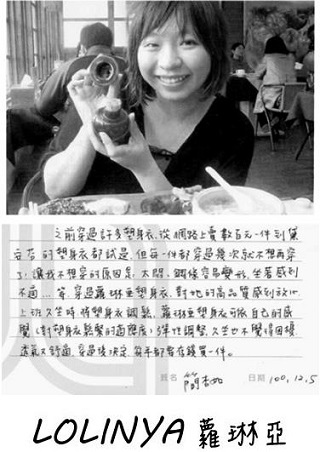 之前穿過許多塑身衣,從網路上賣數百元一件到黛
安芬的塑身衣都試過,但每一件都穿過幾次就不想再穿
了,讓我不想穿的原因是太悶、鋼條容易變形、坐著感到
不適…等,穿過蘿琳亞塑身衣,對她的高品質感到放心
上班久坐時,將塑身衣調鬆,蘿琳亞塑身衣可依自己的感
覺(對塑身衣鬆緊的適應度)彈性調整,久坐也不覺得困擾,
透氣又舒適,穿過後決定,每年都要存錢買一件。
姓名
日期 100.12.5
LOLINYA 蘿琳亞